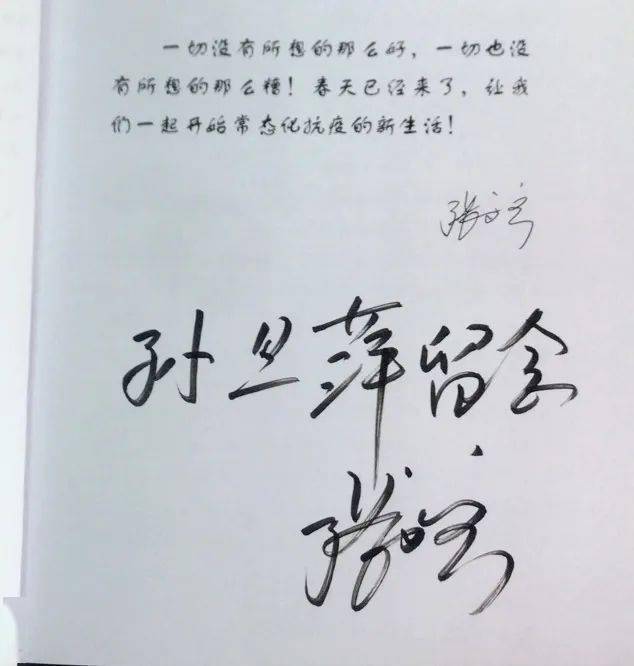 一切没有所想的那么好，一切也没
有所想的那么糟！春天已经来了，让我
们一起开始常态化抗疫的新生活！
张文宏
孙旦萍留念
张文宏